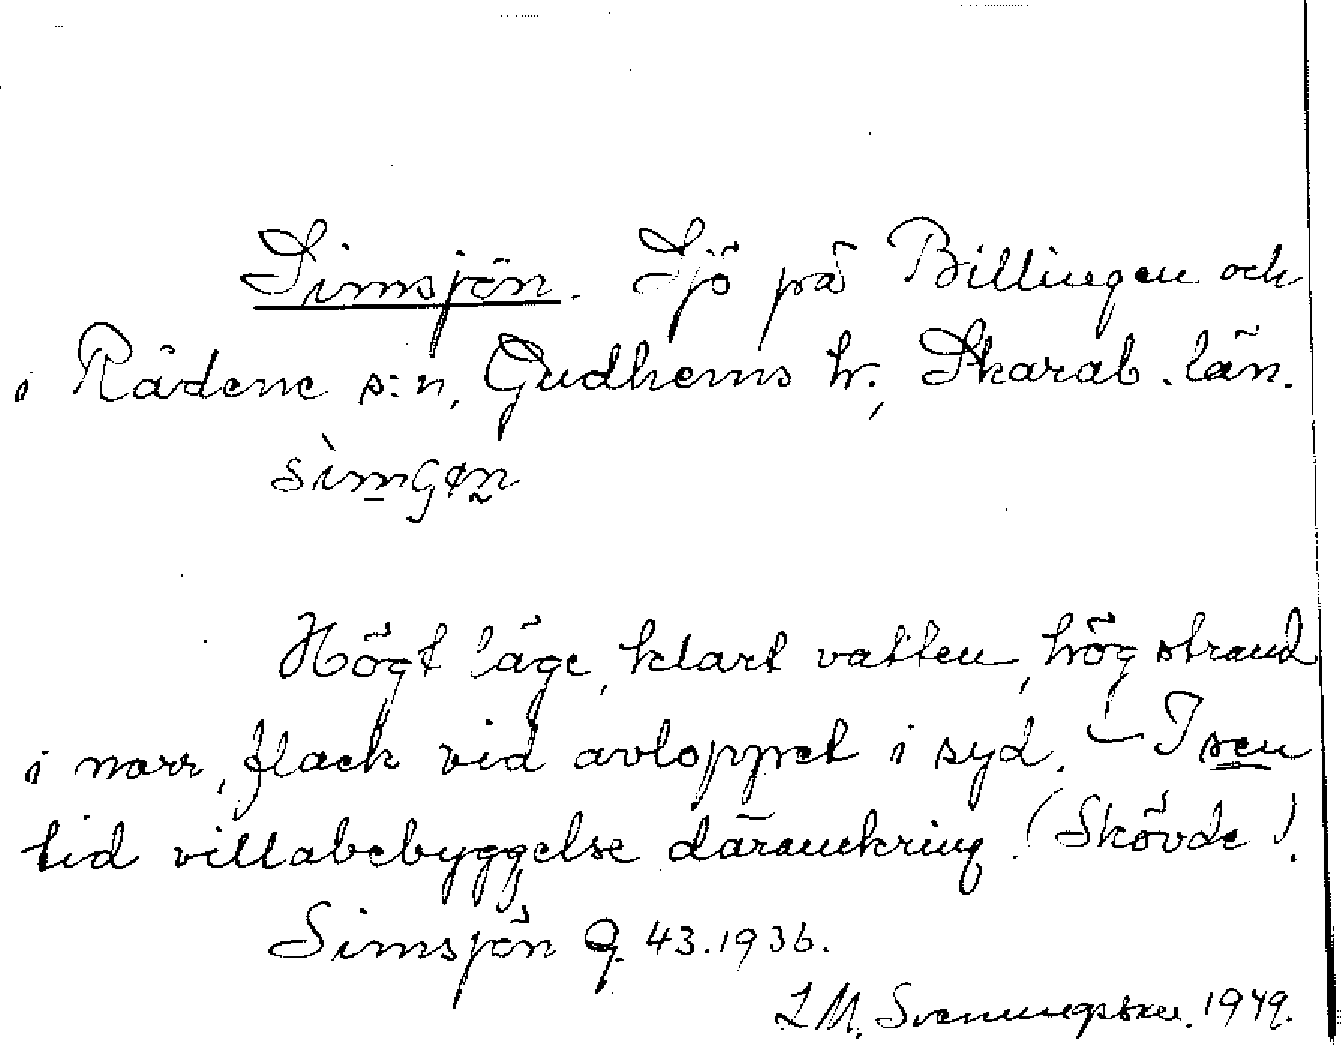 Simsjön. Sjö på Billingen och
i Rådene s:n, Gudhems hr, Skarab. län.
Högt läge, klart vatten, hög strand
i norr, flack vid avloppet i syd. – I sen
tid villabebyggelse däromkring (Skövde).
Simsjön G. 43.1936.
L M. Svenungsson. 1949.